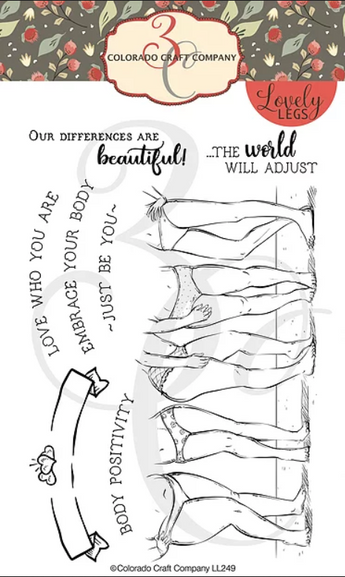 3C
COLORADO CRAFT COMPANY
Lovely
LEGS
OUR DIFFERENCES ARE
beautiful!
...THE world
WILL ADJUST
LOVE WHO YOU ARE
EMBRACE YOUR BODY
~JUST BE YOU~
BODY POSITIVITY
©Colorado Craft Company LL249